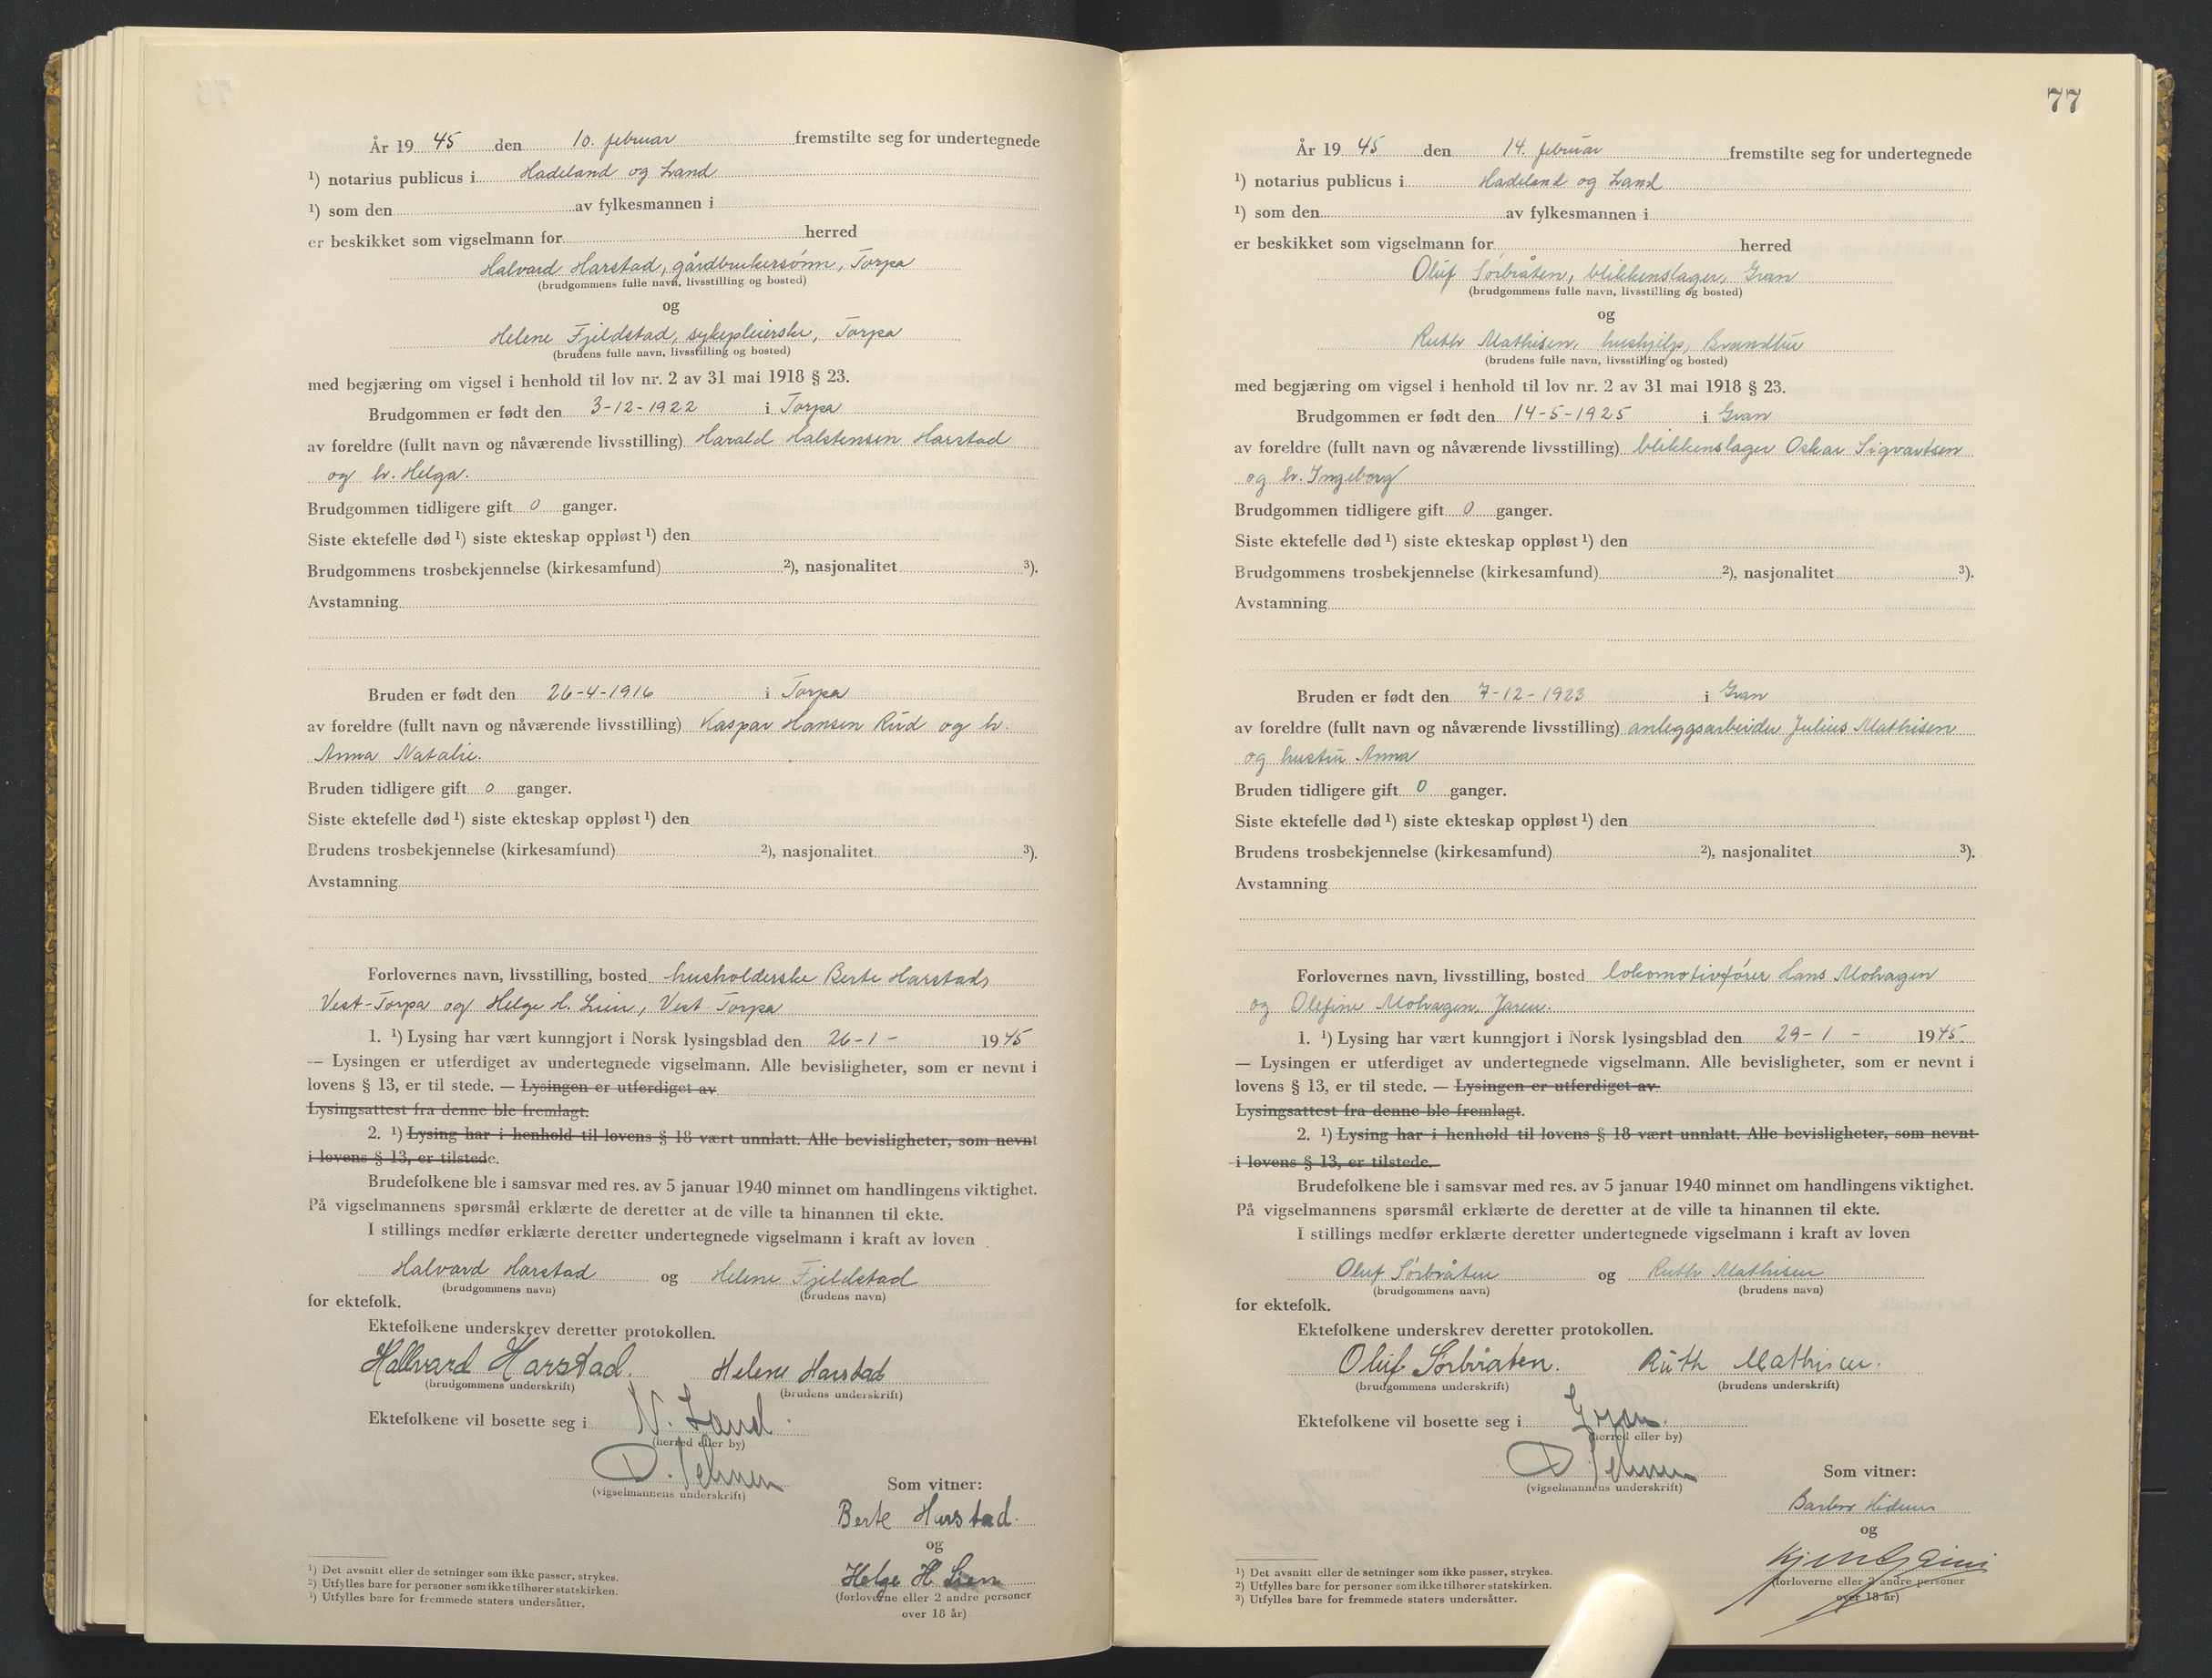 År 19 45 den 10. februar fremstilte seg for undertegnede
¹) notarius publicus i Hadeland og Land
¹) som den av fylkesmannen i
er beskikket som vigselmann for herred
Halvard Harstad, gårdbrukersønn, Torpa
(brudgommens fulle navn, livsstilling og bosted)
og
Helene Fjeldstad, sykepleierske, Torpa
(brudens fulle navn, livsstilling og bosted)
med begjæring om vigsel i henhold til lov nr. 2 av 31 mai 1918 § 23.
Brudgommen er født den 3-12-1922 i Torpa
av foreldre (fullt navn og nåværende livsstilling) Harald Halstensen Harstad
og h. Helga.
Brudgommen tidligere gift 0 ganger.
Siste ektefelle død ¹) siste ekteskap oppløst ¹) den
Brudgommens trosbekjennelse (kirkesamfund) ²), nasjonalitet ³).
Avstamning
Bruden er født den 26-4-1916 i Torpa
av foreldre (fullt navn og nåværende livsstilling) Kaspar Hansen Rud og h.
Anna Natalie.
Bruden tidligere gift 0 ganger.
Siste ektefelle død ¹) siste ekteskap oppløst ¹) den
Brudens trosbekjennelse (kirkesamfund) ²), nasjonalitet ³).
Avstamning
Forlovernes navn, livsstilling, bosted husholderske Berte Harstad,
Vest-Torpa og Helge H. Lien, Vest-Torpa
1. ¹) Lysing har vært kunngjort i Norsk lysingsblad den 26-1- 1945
— Lysingen er utferdiget av undertegnede vigselmann. Alle bevisligheter, som er nevnt i
lovens § 13, er til stede. — Lysingen er utferdiget av
Lysingsattest fra denne ble fremlagt.
2. ¹) Lysing har i henhold til lovens § 18 vært unnlatt. Alle bevisligheter, som nevnt
i lovens § 13, er tilstede.
Brudefolkene ble i samsvar med res. av 5 januar 1940 minnet om handlingens viktighet.
På vigselmannens spørsmål erklærte de deretter at de ville ta hinannen til ekte.
I stillings medfør erklærte deretter undertegnede vigselmann i kraft av loven
Halvard Harstad og Helene Fjeldstad
(brudgommens navn) (brudens navn)
for ektefolk.
Ektefolkene underskrev deretter protokollen.
Hallvard Harstad. Helene Harstad
(brudgommens underskrift) (brudens underskrift)
Ektefolkene vil bosette seg i N. Land.
(herred eller by)
D.
(vigselmannens underskrift)
Som vitner:
Berte Harstad.
og
Helge H Lien
(forloverne eller 2 andre personer
over 18 år)
¹) Det avsnitt eller de setninger som ikke passer, strykes.
²) Utfylles bare for personer som ikke tilhører statskirken.
³) Utfylles bare for fremmede staters undersåtter.
77
År 19 45 den 14. februar fremstilte seg for undertegnede
¹) notarius publicus i Hadeland og Land
¹) som den av fylkesmannen i
er beskikket som vigselmann for herred
Oluf Sørbråten, blikkenslager, Gran
(brudgommens fulle navn, livsstilling og bosted)
og
Ruth Mathisen, hushjelp, Brandbu
(brudens fulle navn, livsstilling og bosted)
med begjæring om vigsel i henhold til lov nr. 2 av 31 mai 1918 § 23.
Brudgommen er født den 14-5-1925 i Gran
av foreldre (fullt navn og nåværende livsstilling) blikkenslager Oskar Sigvartsen
og h. Ingeborg
Brudgommen tidligere gift 0 ganger.
Siste ektefelle død ¹) siste ekteskap oppløst ¹) den
Brudgommens trosbekjennelse (kirkesamfund) ²), nasjonalitet ³).
Avstamning
Bruden er født den 7-12-1923 i Gran
av foreldre (fullt navn og nåværende livsstilling) anleggsarbeider Julius Mathisen
og hustru Anna
Bruden tidligere gift 0 ganger.
Siste ektefelle død ¹) siste ekteskap oppløst ¹) den
Brudens trosbekjennelse (kirkesamfund) ²), nasjonalitet ³).
Avstamning
Forlovernes navn, livsstilling, bosted lokomotivfører Hans Mohagen
og Olefine Mohagen, Jaren.
1. ¹) Lysing har vært kunngjort i Norsk lysingsblad den 29-1- 1945.
— Lysingen er utferdiget av undertegnede vigselmann. Alle bevisligheter, som er nevnt i
lovens § 13, er til stede. — Lysingen er utferdiget av
Lysingsattest fra denne ble fremlagt.
2. ¹) Lysing har i henhold til lovens § 18 vært unnlatt. Alle bevisligheter, som nevnt
i lovens § 13, er tilstede.
Brudefolkene ble i samsvar med res. av 5 januar 1940 minnet om handlingens viktighet.
På vigselmannens spørsmål erklærte de deretter at de ville ta hinannen til ekte.
I stillings medfør erklærte deretter undertegnede vigselmann i kraft av loven
Oluf Sørbråten og Ruth Mathisen
(brudgommens navn) (brudens navn)
for ektefolk.
Ektefolkene underskrev deretter protokollen.
Oluf Sørbråten. Ruth Mathisen.
(brudgommens underskrift) (brudens underskrift)
Ektefolkene vil bosette seg i Gran.
(herred eller by)
D.
(vigselmannens underskrift)
Som vitner:
og
(forloverne eller 2 andre personer
over 18 år)
¹) Det avsnitt eller de setninger som ikke passer, strykes.
²) Utfylles bare for personer som ikke tilhører statskirken.
³) Utfylles bare for fremmede staters undersåtter.